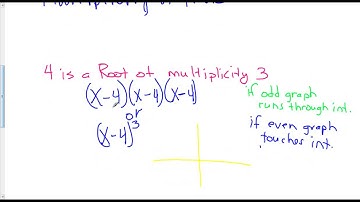 4 is a Root of multiplicity 3
(x-4)(x-4)(x-4)
or
(x-4)³
if odd graph
runs through int.
if even graph
touches int.